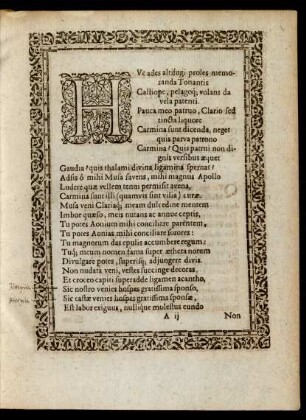 HVc ades altifugi proles memo-
randa Tonantis
Calliope, pelagoq; volans da
vela patenti.
Pauca meo patruo, Clario sed
tincta liquore
Carmina sunt dicenda, neget
quis parva patrono
Carmina? Quis patrui non di-
gnis versibus æquet
Gaudia? quis thalami divina ligamina spernat?
Adsis ô mihi Musa favens, mihi magnus Apollo
Ludere quæ vellem tenui permisit avena,
Carmina sunt illi (quamvis sint vilia) curæ.
Musa veni Clariaq; meam dulcedine mentem
Imbue quæso, meis nutans ac annue cœptis,
Tu potes Aonium mihi conciliare parentem,
Tu potes Aonias mihi conciliare sorores:
Tu magnorum das epulis accumbere regum:
Tuq; meum nomen fama super æthera notum
Divulgare potes, superisq; adjungere divis.
Non nudata veni, vestes succinge decoras,
Et croceo capiti superadde ligamen acantho,
Sic nostro venies hospes gratissima sponso,
Sic castæ venies hospes gratissima sponsæ,
Est labor exiguus, nullique molestus eundo
A ij
Non